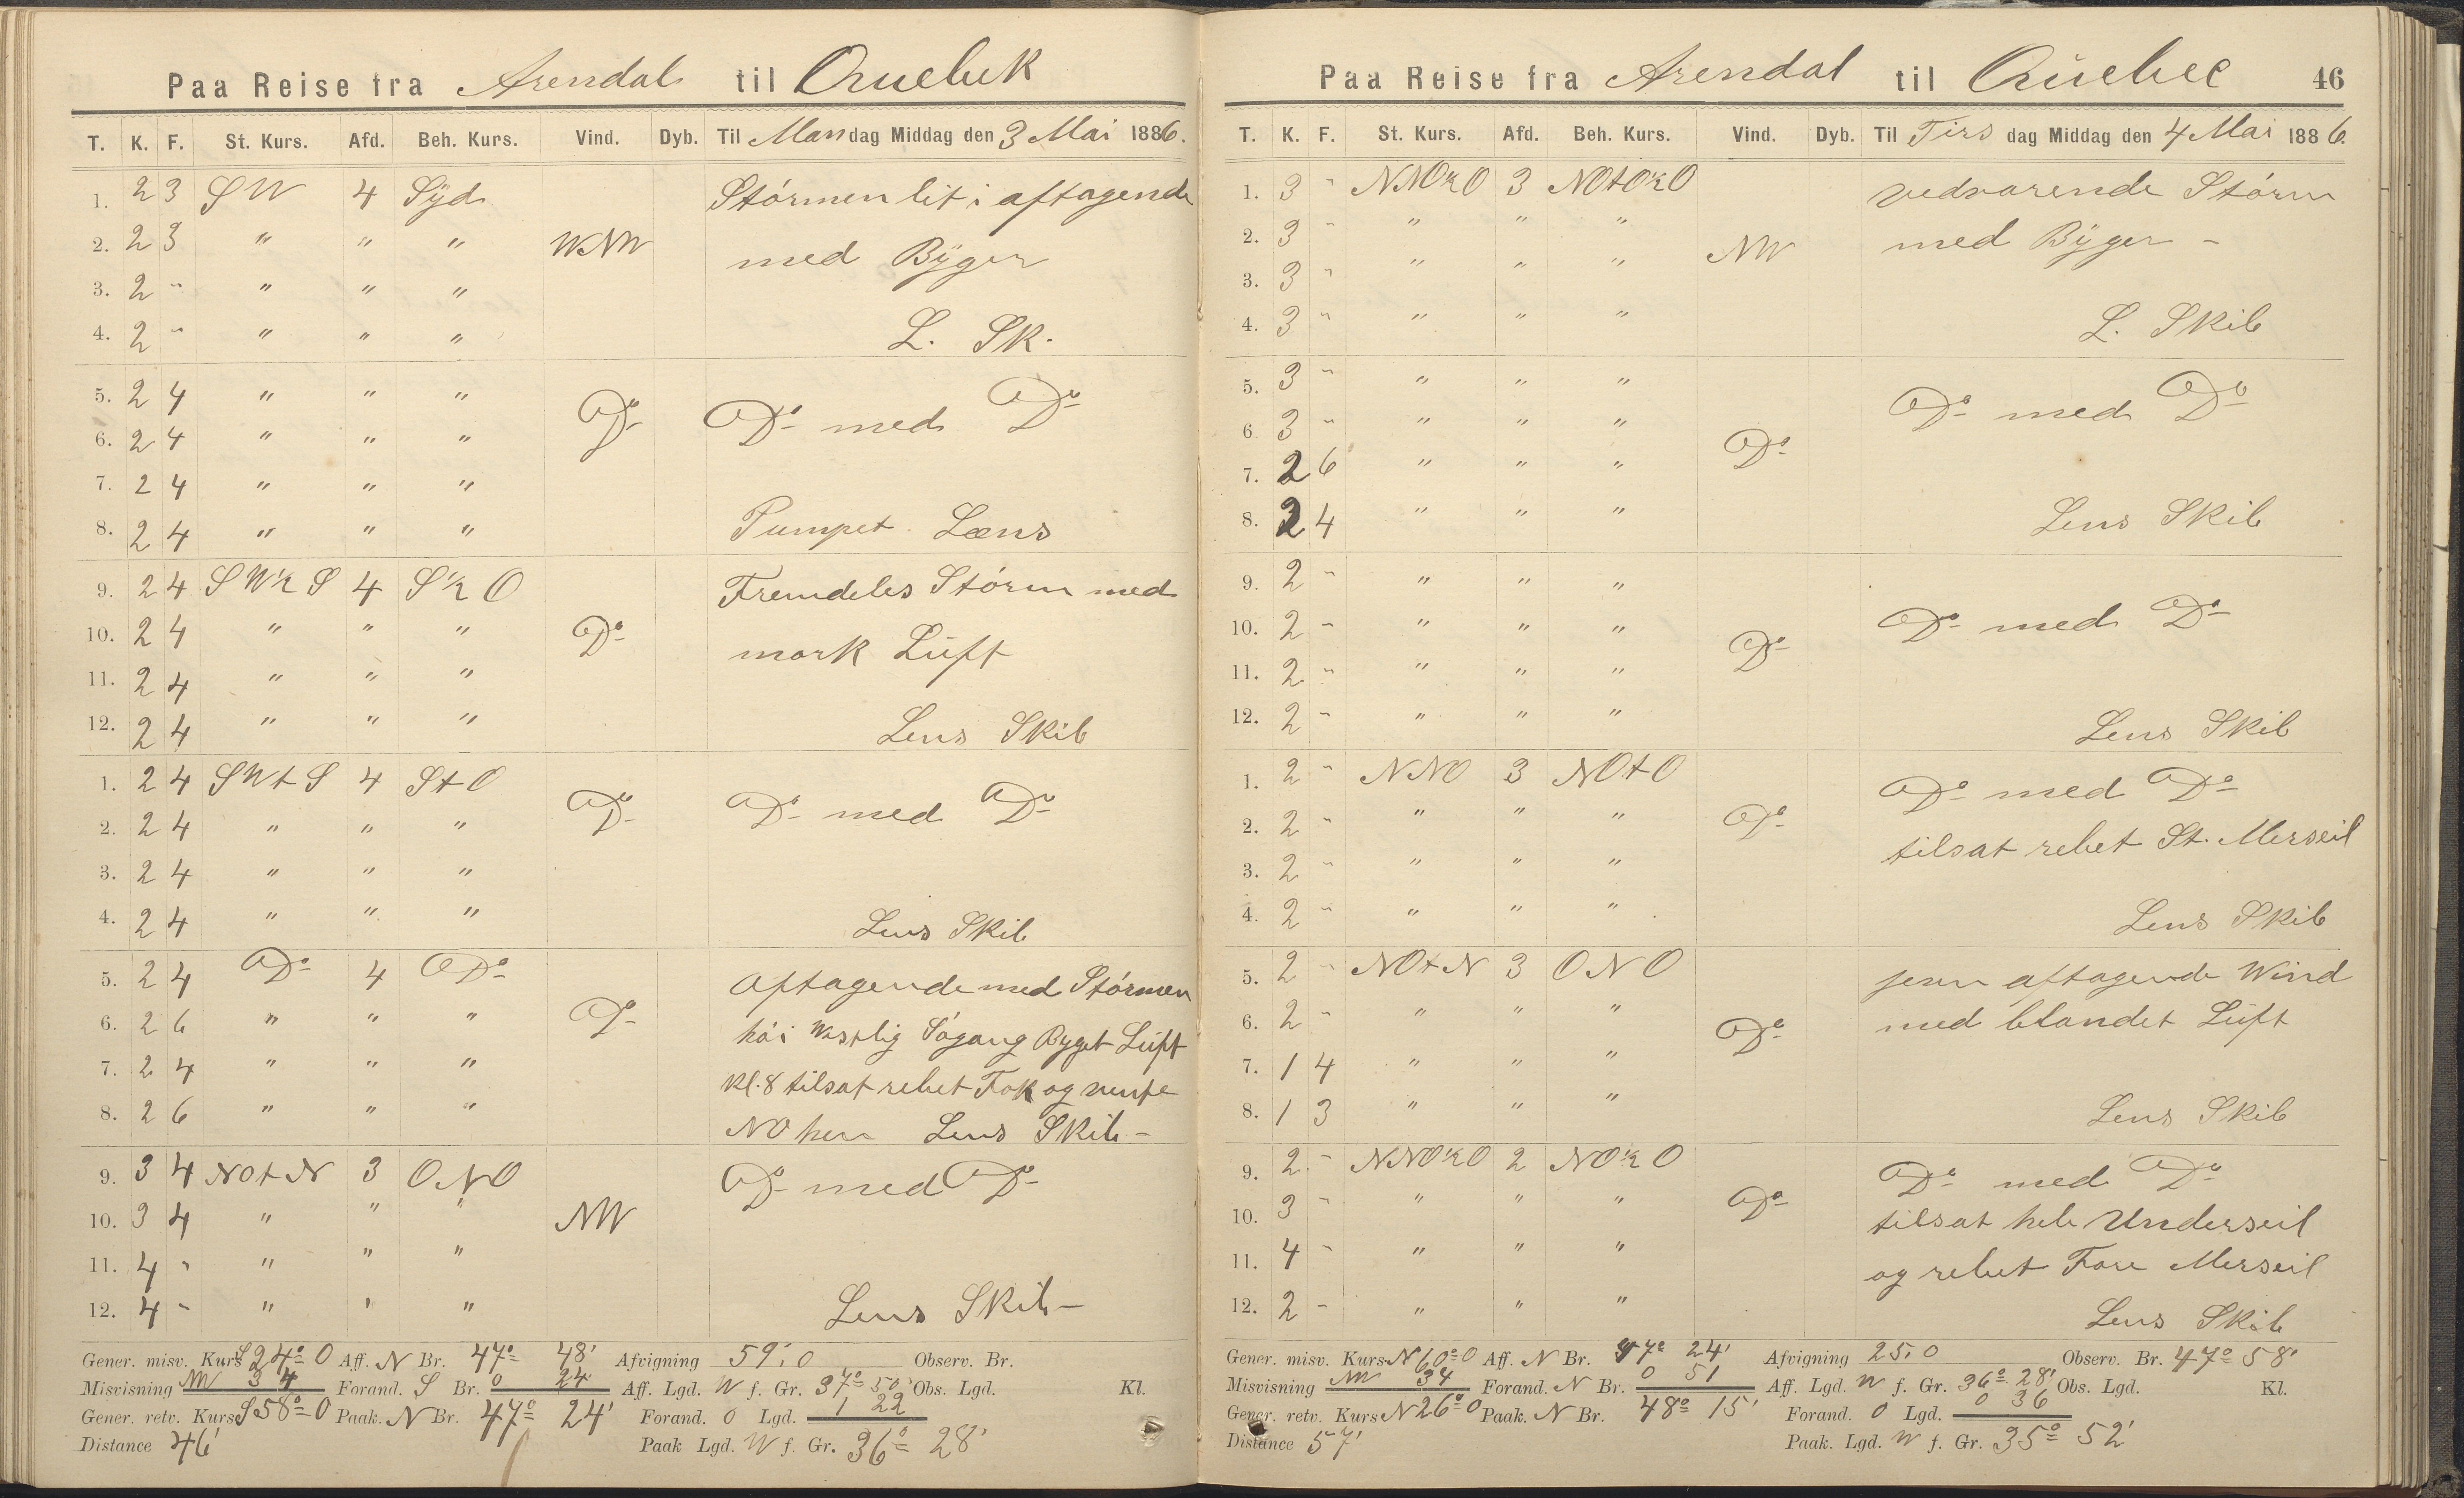 Paa Reise fra Arendal til Quebek
T. K. F. St. Kurs. Afd. Beh. Kurs. Vind. Dyb. Til Mandag Middag den 3 Mai 1886.
1. 2 3 SW 4 Syd Stórmen lit i aftagende
2. 2 3 " " " WNW med Byger
3. 2 - " " "
4. 2 - " " " L. Sk.
5. 2 4 " " " Do Do med Do
6. 2 4 " " "
7. 2 4 " " "
8. 2 4 " " " Pumpet Læns
9. 2 4 SW½S 4 S½O Fremdeles Stórm med
10. 2 4 " " " Do mork Luft
11. 2 4 " " "
12. 2 4 " " " Lens Skib
1. 2 4 SWtS 4 StO Do Do med Do
2. 2 4 " " "
3. 2 4 " " "
4. 2 4 " " " Lens Skib
5. 2 4 Do 4 Do Aftagende med Stórmen
6. 2 6 " " " Do hói Westlig Sógang Byget Luft
7. 2 4 " " " Kl. 8 tilsat rebet Fok og
8. 2 6 " " " NO Lens Skib -
9. 3 4 NOtN 3 ONO Do med Do
10. 3 4 " " " NW
11. 4 - " " "
12. 4 - " " " Lens Skib -
Gener. misv. Kurs S 24° O Aff. N Br. 47° 48' Afvigning 59,0 Observ. Br.
Misvisning NW 34 Forand. S Br. 0 24 Aff. Lgd. W f. Gr. 37° 50' Obs. Lgd. Kl.
Gener. retv. Kurs S 58° O Paak. N Br. 47° 24' Forand. O Lgd. 1 22
Distance 46' Paak Lgd. W f. Gr. 36° 28'
Paa Reise fra Arendal til Quebec 46
T. K. F. St. Kurs. Afd. Beh. Kurs. Vind. Dyb. Til Tirsdag Middag den 4 Mai 1886.
1. 3 - NNO½O 3 NOtO½O vedvarende Stórm
2. 3 - " " " NW med Byger -
3. 3 - " " "
4. 3 - " " " L. Skib
5. 3 - " " " Do med Do
6. 3 - " " " Do
7. 2 6 " " "
8. 2 4 " " " Lens Skib
9. 2 - " " "
10. 2 - " " " Do Do med Do
11. 2 - " " "
12. 2 - " " " Lens Skib
1. 2 - NNO 3 NOtO Do med Do
2. 2 - " " " Do tilsat rebet St. Merseil
3. 2 - " " "
4. 2 - " " " Lens Skib
5. 2 - NOtN 3 ONO jevn aftagende Wind
6. 2 - " " " Do med blandet Luft
7. 1 4 " " "
8. 1 3 " " " Lens Skib
9. 2 - NNO½O 2 NO½O Do med Do
10. 3 - " " " Do tilsat hele Underseil
11. 4 - " " " og rebet Fore Merseil
12. 2 - " " " Lens Skib
Gener. misv. Kurs N 60° O Aff. N Br. 47° 24' Afvigning 25,0 Observ. Br. 47° 58'
Misvisning NW 34 Forand. N Br. 0 51 Aff. Lgd. W f. Gr. 36° 28' Obs. Lgd. Kl.
Gener. retv. Kurs N 26° O Paak. N Br. 48° 15' Forand. O Lgd. 0 36
Distance 57' Paak. Lgd. W f. Gr. 35° 52'